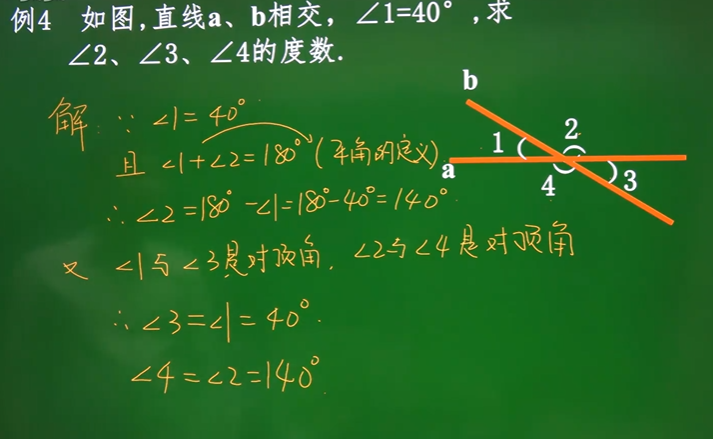 例4 如图,直线a、b相交，∠1=40°,求
∠2、∠3、∠4的度数.
解: ∵ ∠1=40°
且 ∠1+∠2=180°(平角的定义)
∴ ∠2=180°-∠1=180°-40°=140°.
又 ∠1与∠3是对顶角. ∠2与∠4是对顶角
∴ ∠3=∠1=40°.
∠4=∠2=140°.
b
1
2
a
4
3